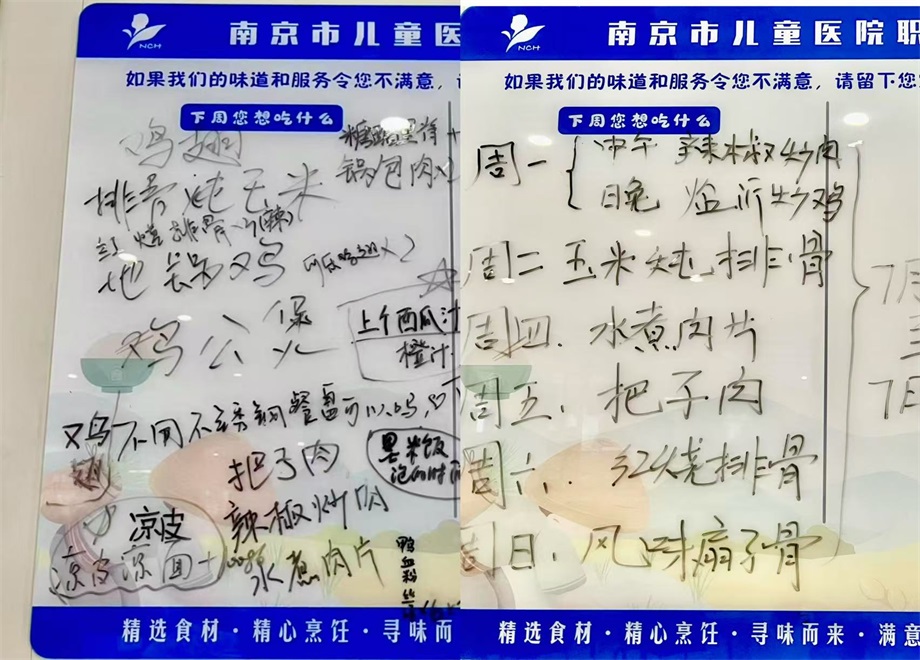 NCH
南京市儿童医
如果我们的味道和服务令您不满意,
下周您想吃什么
鸡翅
锅包肉
排骨炖玉米
红烧排骨
地锅鸡
鸡公煲
上个西瓜汁
橙汁
鸡翅
不用不锈钢餐盘可以吗
黑米饭
泡的时间
把子肉
辣椒炒肉
凉皮
凉皮凉面
水煮肉片
鸭血粉丝
精选食材·精心烹饪·寻味而
NCH
南京市儿童医院职
如果我们的味道和服务令您不满意,请留下您
下周您想吃什么
周一
中午 辣椒炒肉
日晚 临沂炒鸡
周二 玉米炖排骨
周四. 水煮肉片
周五. 把子肉
周六. 红烧排骨
周日. 风味扇子骨
7月
7月
精选食材·精心烹饪·寻味而来·满意